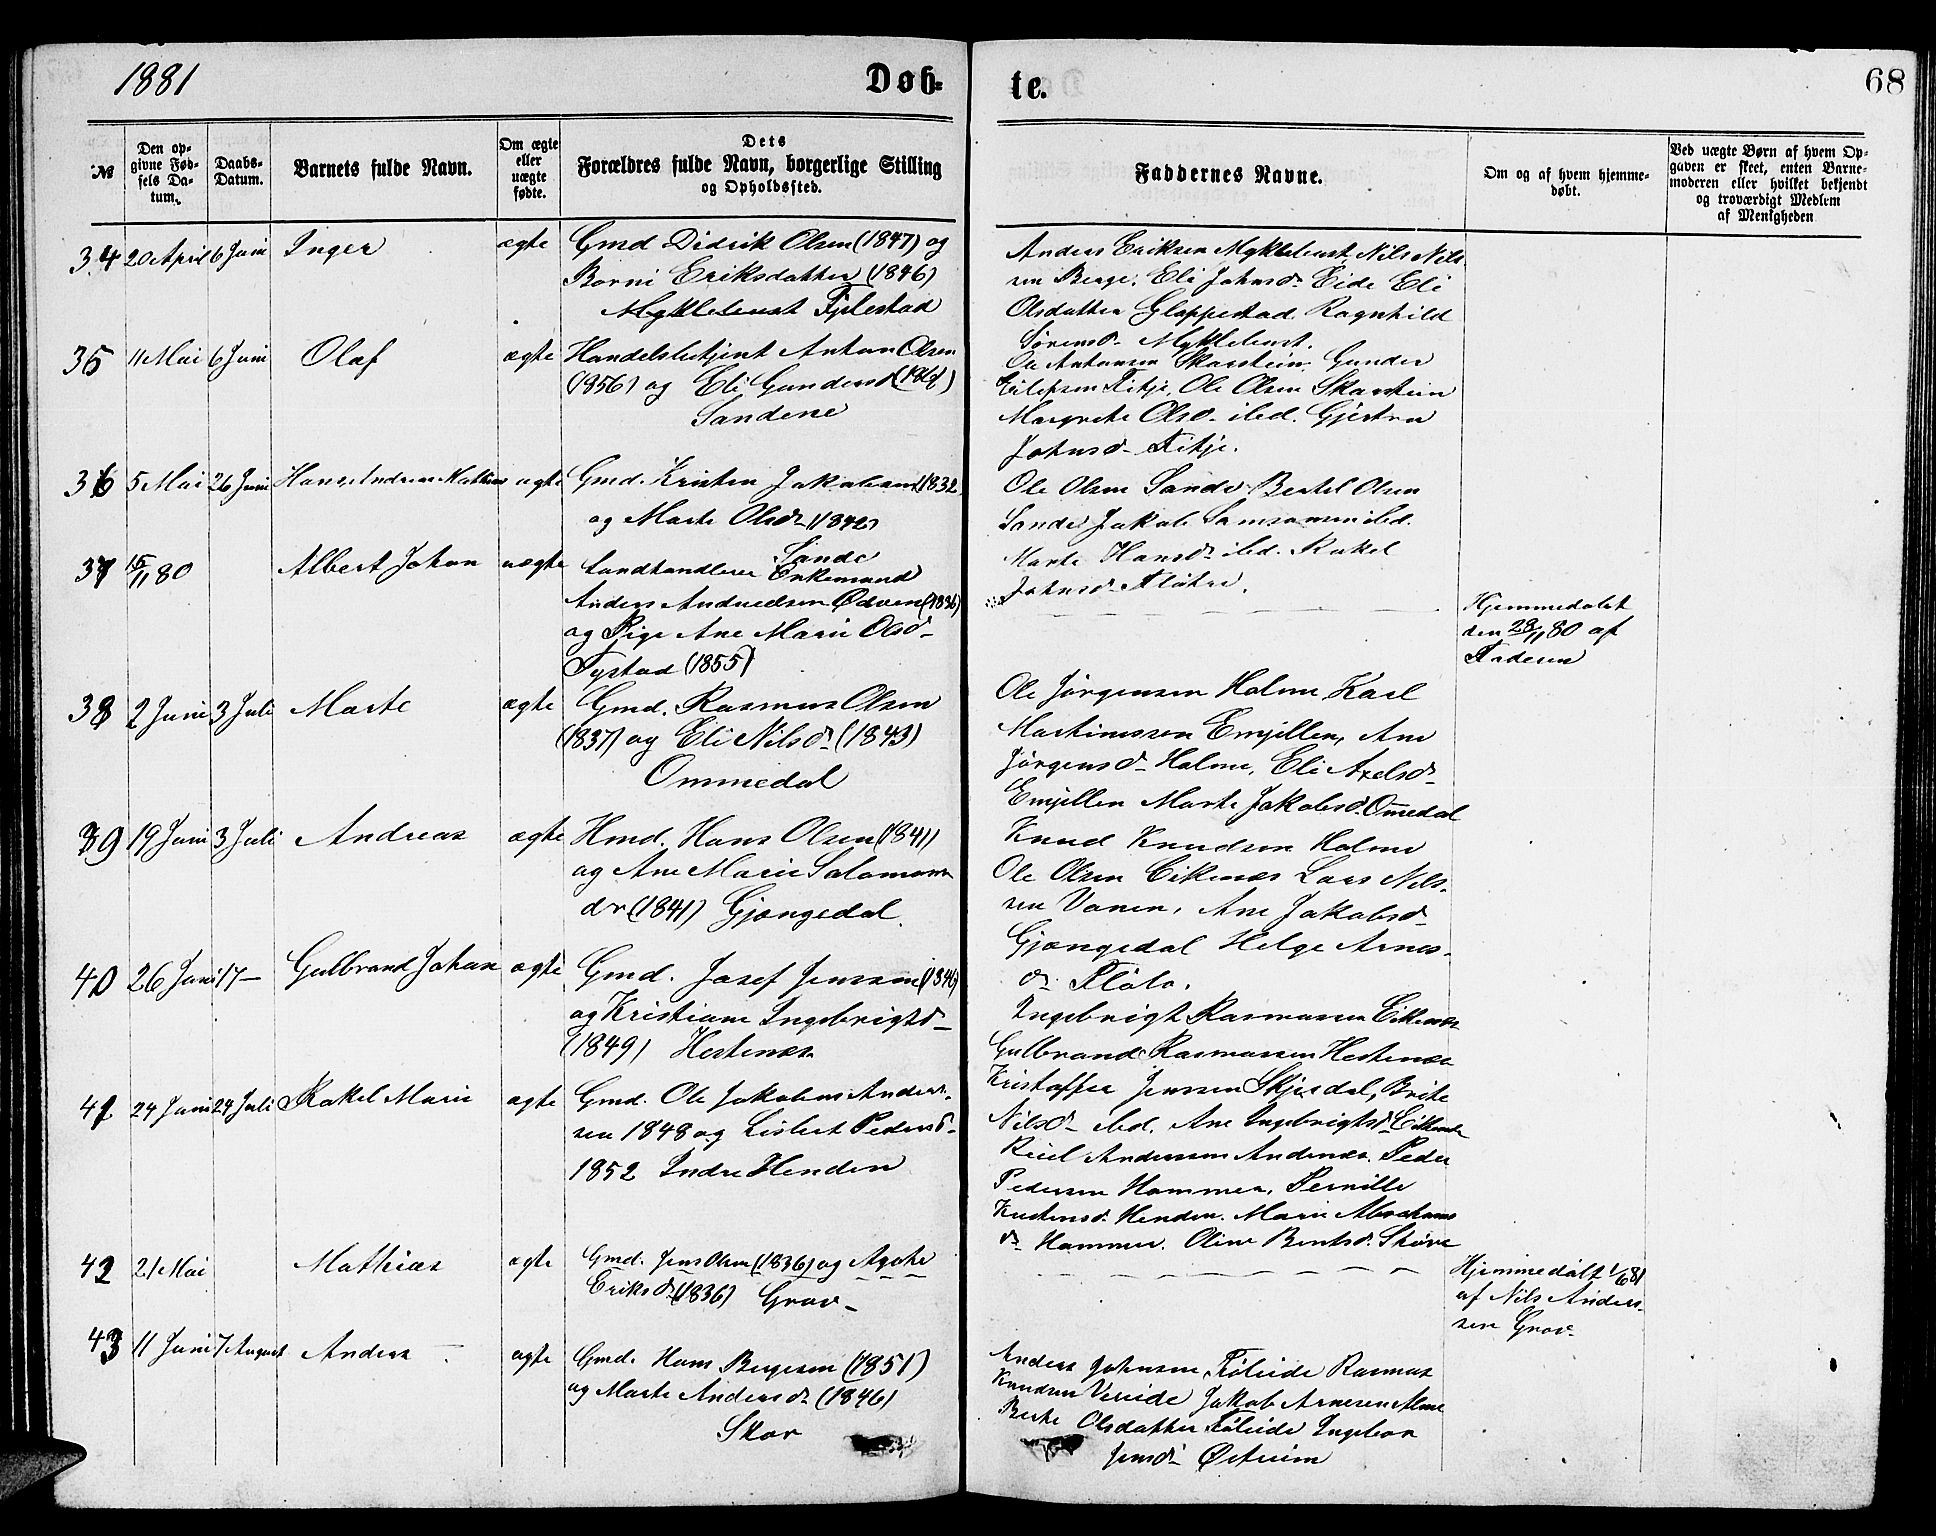 1881
Døb-
te.
68
№
Den op-
givne Fød-
sels Da-
tum.
Daabs-
Datum.
Barnets fulde Navn.
Om ægte
eller
uægte
fødte.
Dets
Forældres fulde Navn, borgerlige Stilling
og Opholdssted.
Faddernes Navne.
Om og af hvem hjemme-
døbt.
Ved uægte Børn af hvem Op-
gaven er skeet, enten Barne-
moderen eller hvilket bekjendt
og troværdigt Medlem
af Menigheden
34 20 April 6 Juni Inger ægte Gmd Didrik Olsen (1847) og
Borni Eriksdatter (1846)
Myklebust Fjelestad
Anders Eriksen Myklebust, Nils Nils-
sen Berge, Eli Johnsd. Eide Eli
Olsdatter Gloppestad Ragnhild
Sørensd. Myklebust.
35 11 Mai 6 Juni Olaf ægte Handelsbetjent Anton Olsen
(1856) og Eli Gundersd.
Sandene
Ole Antonsen Skarstein Gunder
Eilefsen Fitje, Ole Olsen Skarstein
Margrete Olsd. ibd. Gjertru
Johnsd. Fitje.
36 5 Mai 26 Juni Hans Andreas Mathias ægte Gmd. Kristen Jakobsen (1832
og Marte Olsd. (1842)
Sande
Ole Olsen Sande Bertel Olsen
Sande Jakob Samsonsen ibd.
Marte Hansd. ibd. Rakel
Johnsd. Fløtre.
37 15/11 80 Albert Johan uægte Landhandler Enkemand
Anders Andreessen Ødven (1836)
og Pige Ane Marie Olsd.
Tystad (1855)
Hjemmedøbt
den 28/11 80 af
Faderen
38 2 Juni 3 Juli Marte ægte Gmd. Rasmus Olsen
(1837) og Eli Nilsd. (1843)
Ommedal
Ole Jørgensen Holme Karl
Martinussen Emjellen, Ane
Jørgensd. Holme, Eli Axelsd.
Emjellen Marte Jakobsd. Omedal
39 19 Juni 3 Juli Andreas ægte Hmd. Hans Olsen (1841)
og Ane Marie Salomons
dr (1841) Gjengedal.
Knud Knudsen Holme
Ole Olsen Eikenæs Lars Nils-
sen Vonen, Ane Jakobsd.
Gjengedal Helge Arnes-
d. Fløto.
40 26 Juni 17 — Gulbrand Johan ægte Gmd. Josef Jenssen (1846)
og Kristiane Ingebrigtsd.
(1849) Hestenæs
Ingebrigt Rasmussen Eikenæs
Gulbrand Rasmussen Hestenæs
Kristoffer Jenssen Skjerdal, Brite
Nilsd. ibd. Ane Ingebrigtsd. Eikenæs
41 24 Juni 24 Juli Rakel Marie ægte Gmd. Ole Jakobus Anders-
sen 1848 og Lisbet Pedersd.
1852 Indre Henden
Reiel Anderssen Andenæs. Peder
Pedersen Hammer, Pernille
Henden. Marie Abrahams
d. Hammer. Oline Bentsd. Skøre
42 21 Mai Mathias ægte Gmd. Jens Olsen (1836) og Agate
Eriksd. (1836) Grov
Hjemmedøbt 1/6 81
af Nils Anders-
sen Grov
43 11 Juni 7 August Anders ægte Gmd. Hans Bergesen (1851)
og Marte Andersd. (1846)
Skor
Anders Johnsen, Føleide Rasmus
Knudsen Vereide Jakob Arnesen Alme
Berte Olsdatter Føleide Ingebor
Jensd. Østreim